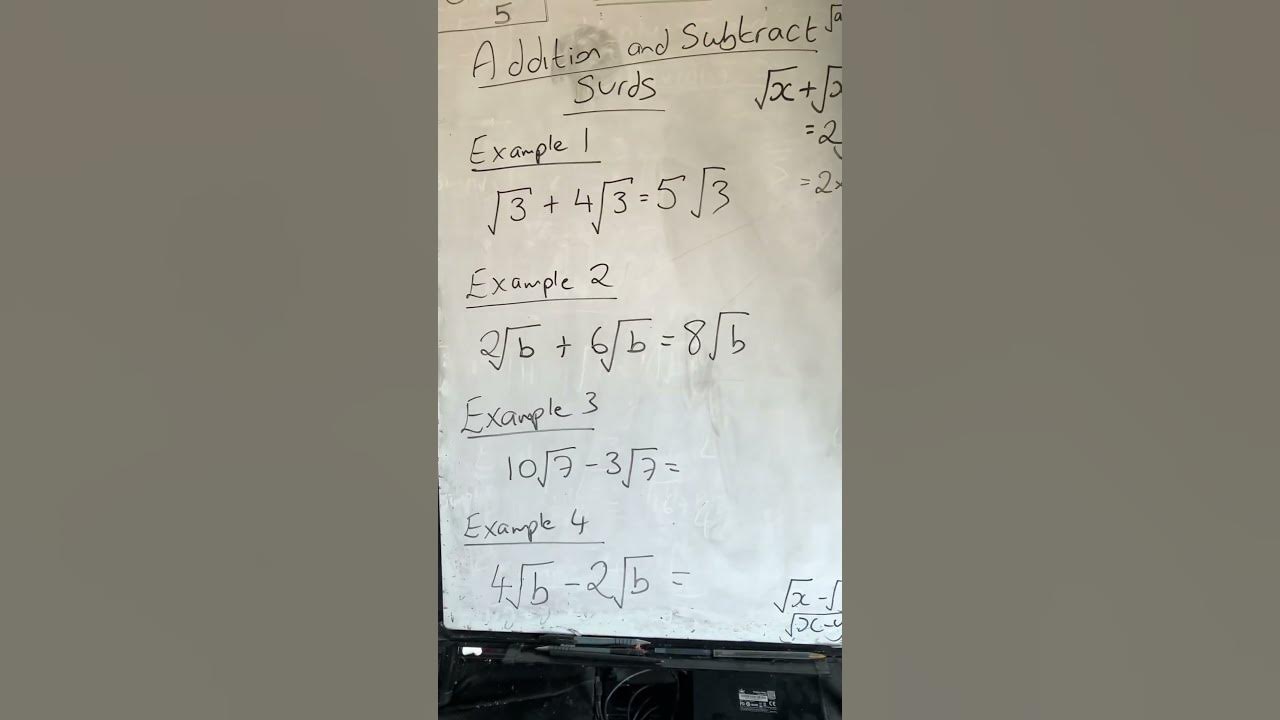 5
Addition and Subtract
Surds
√x + √x
= 2
= 2x
Example 1
√3 + 4√3 = 5√3
Example 2
2√b + 6√b = 8√b
Example 3
10√7 - 3√7 =
Example 4
4√b - 2√b =
√x - √
√x-y